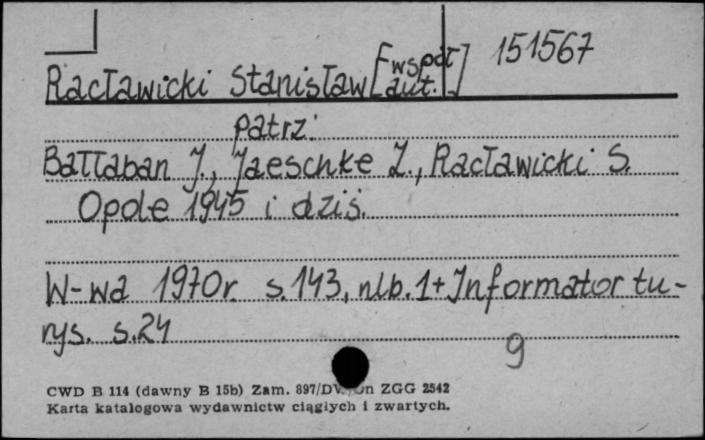 Racławicki Stanisław [współ aut.] 151567
patrz:
Bałłaban J., Jaeschke L., Racławicki S.
Opole 1945 i dziś.
W-wa 1970r. s.143, nlb.1+Informator tu-
rys. s.24
9
CWD B 114 (dawny B 15b) Zam. ZGG 2542
Karta katalogowa wydawnictw ciągłych i zwartych.